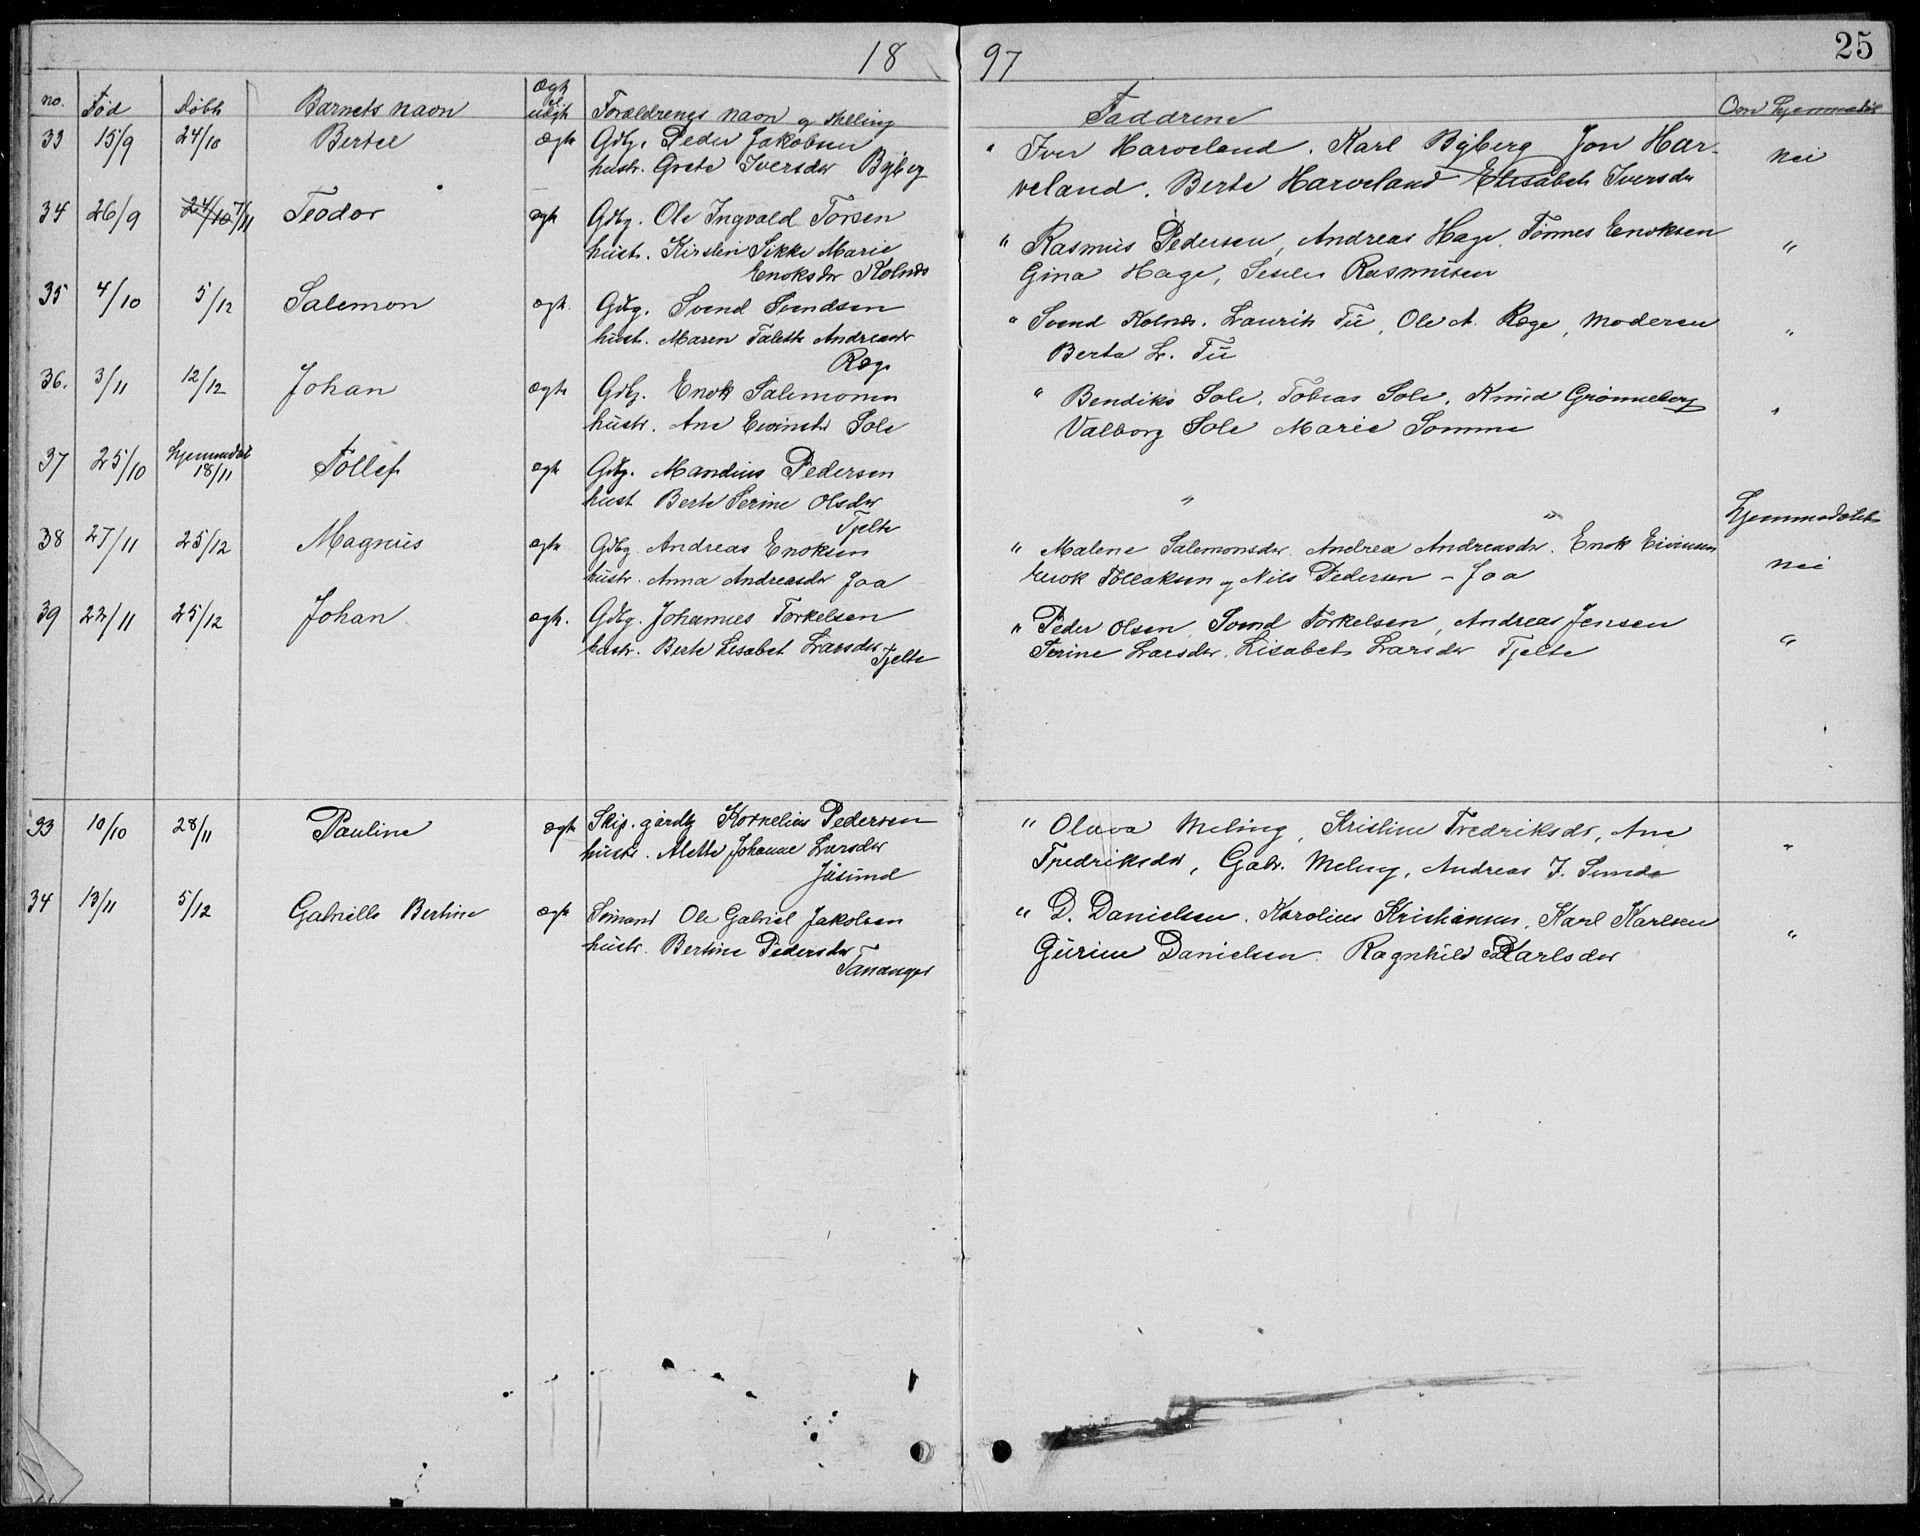 18 97 25
no. Fød Døbt Barnets navn Ægt el. uægt Forældrenes navn og stilling Faddrene Om hjemmedøbt
33 15/9 24/10 Bertel ægte Gdbg. Peder Jakobsen " Iver Harveland. Karl Byberg Jon Har- nei
hustr. Grete Iversdr Byberg veland. Berte Harveland Elisabeth Iversdr
34 26/9 24/10 7/11 Teodor ægt Gdbg. Ole Ingvald Torsen " Rasmus Pedersen, Andreas Hage. Tønnes Enoksen "
hustr. Kirsten Sikke Marie Gina Hage, Rasmusen
Enoksdr Kolnes
35 4/10 5/12 Salemon ægt. Gdbg. Svend Svendsen " Svend Kolnes. Laurits Tu, Ole A. Ræge, moderen "
hust. Maren Talette Andreasdr Berta L. Tu
Ræge
36. 3/11 12/12 Johan ægte Gdbg. Enok Salemonsen " Bendiks Sole, Tobias Sole. Knud Grønneberg "
hustr. Ane Eivindsdr Sole Valborg Sole Marie Somme
37 25/10 hjemmedøbt 18/11 Tollef ægt Gdbg. Mandius Pedersen " " hjemmedøbt
hust Berte Serine Olsdr
Tjelte
38 27/11 25/12 Magnus ægte Gdbg. Andreas Enoksen " Malene Salemonsdr. Andrea Andreasdr. Enok Eivinsen nei
hustr. Anna Andreasdr Joa Enok Tollaksen og Nils Pedersen - Joa
39 22/11 25/12 Johan ægt. Gdbg. Johannes Torkelsen " Peder Olsen Svend Torkelsen, Andreas Jensen "
hustr. Berte Lisabet Larsdr Tjelte Serine Larsdr. Lisabet Larsdr Tjelte
33 10/10 28/11 Pauline ægte Skip. gårdbg Kornelius Pedersen " Olava Meling, Kristine Fredriksdr, Ane "
hustr. Alette Johanne Larsdr Fredriksdr, Gabr. Meling, Andreas J. Sunde
Jåsund
34 13/11 5/12 Gabrielle Bertine ægte Sømand Ole Gabriel Jakobsen " D. Danielsen. Karolius Kristiansen, Karl Karlsen "
hustr. Bertine Pedersdr Gurine Danielsen. Ragnhild Karlsdr
Tananger